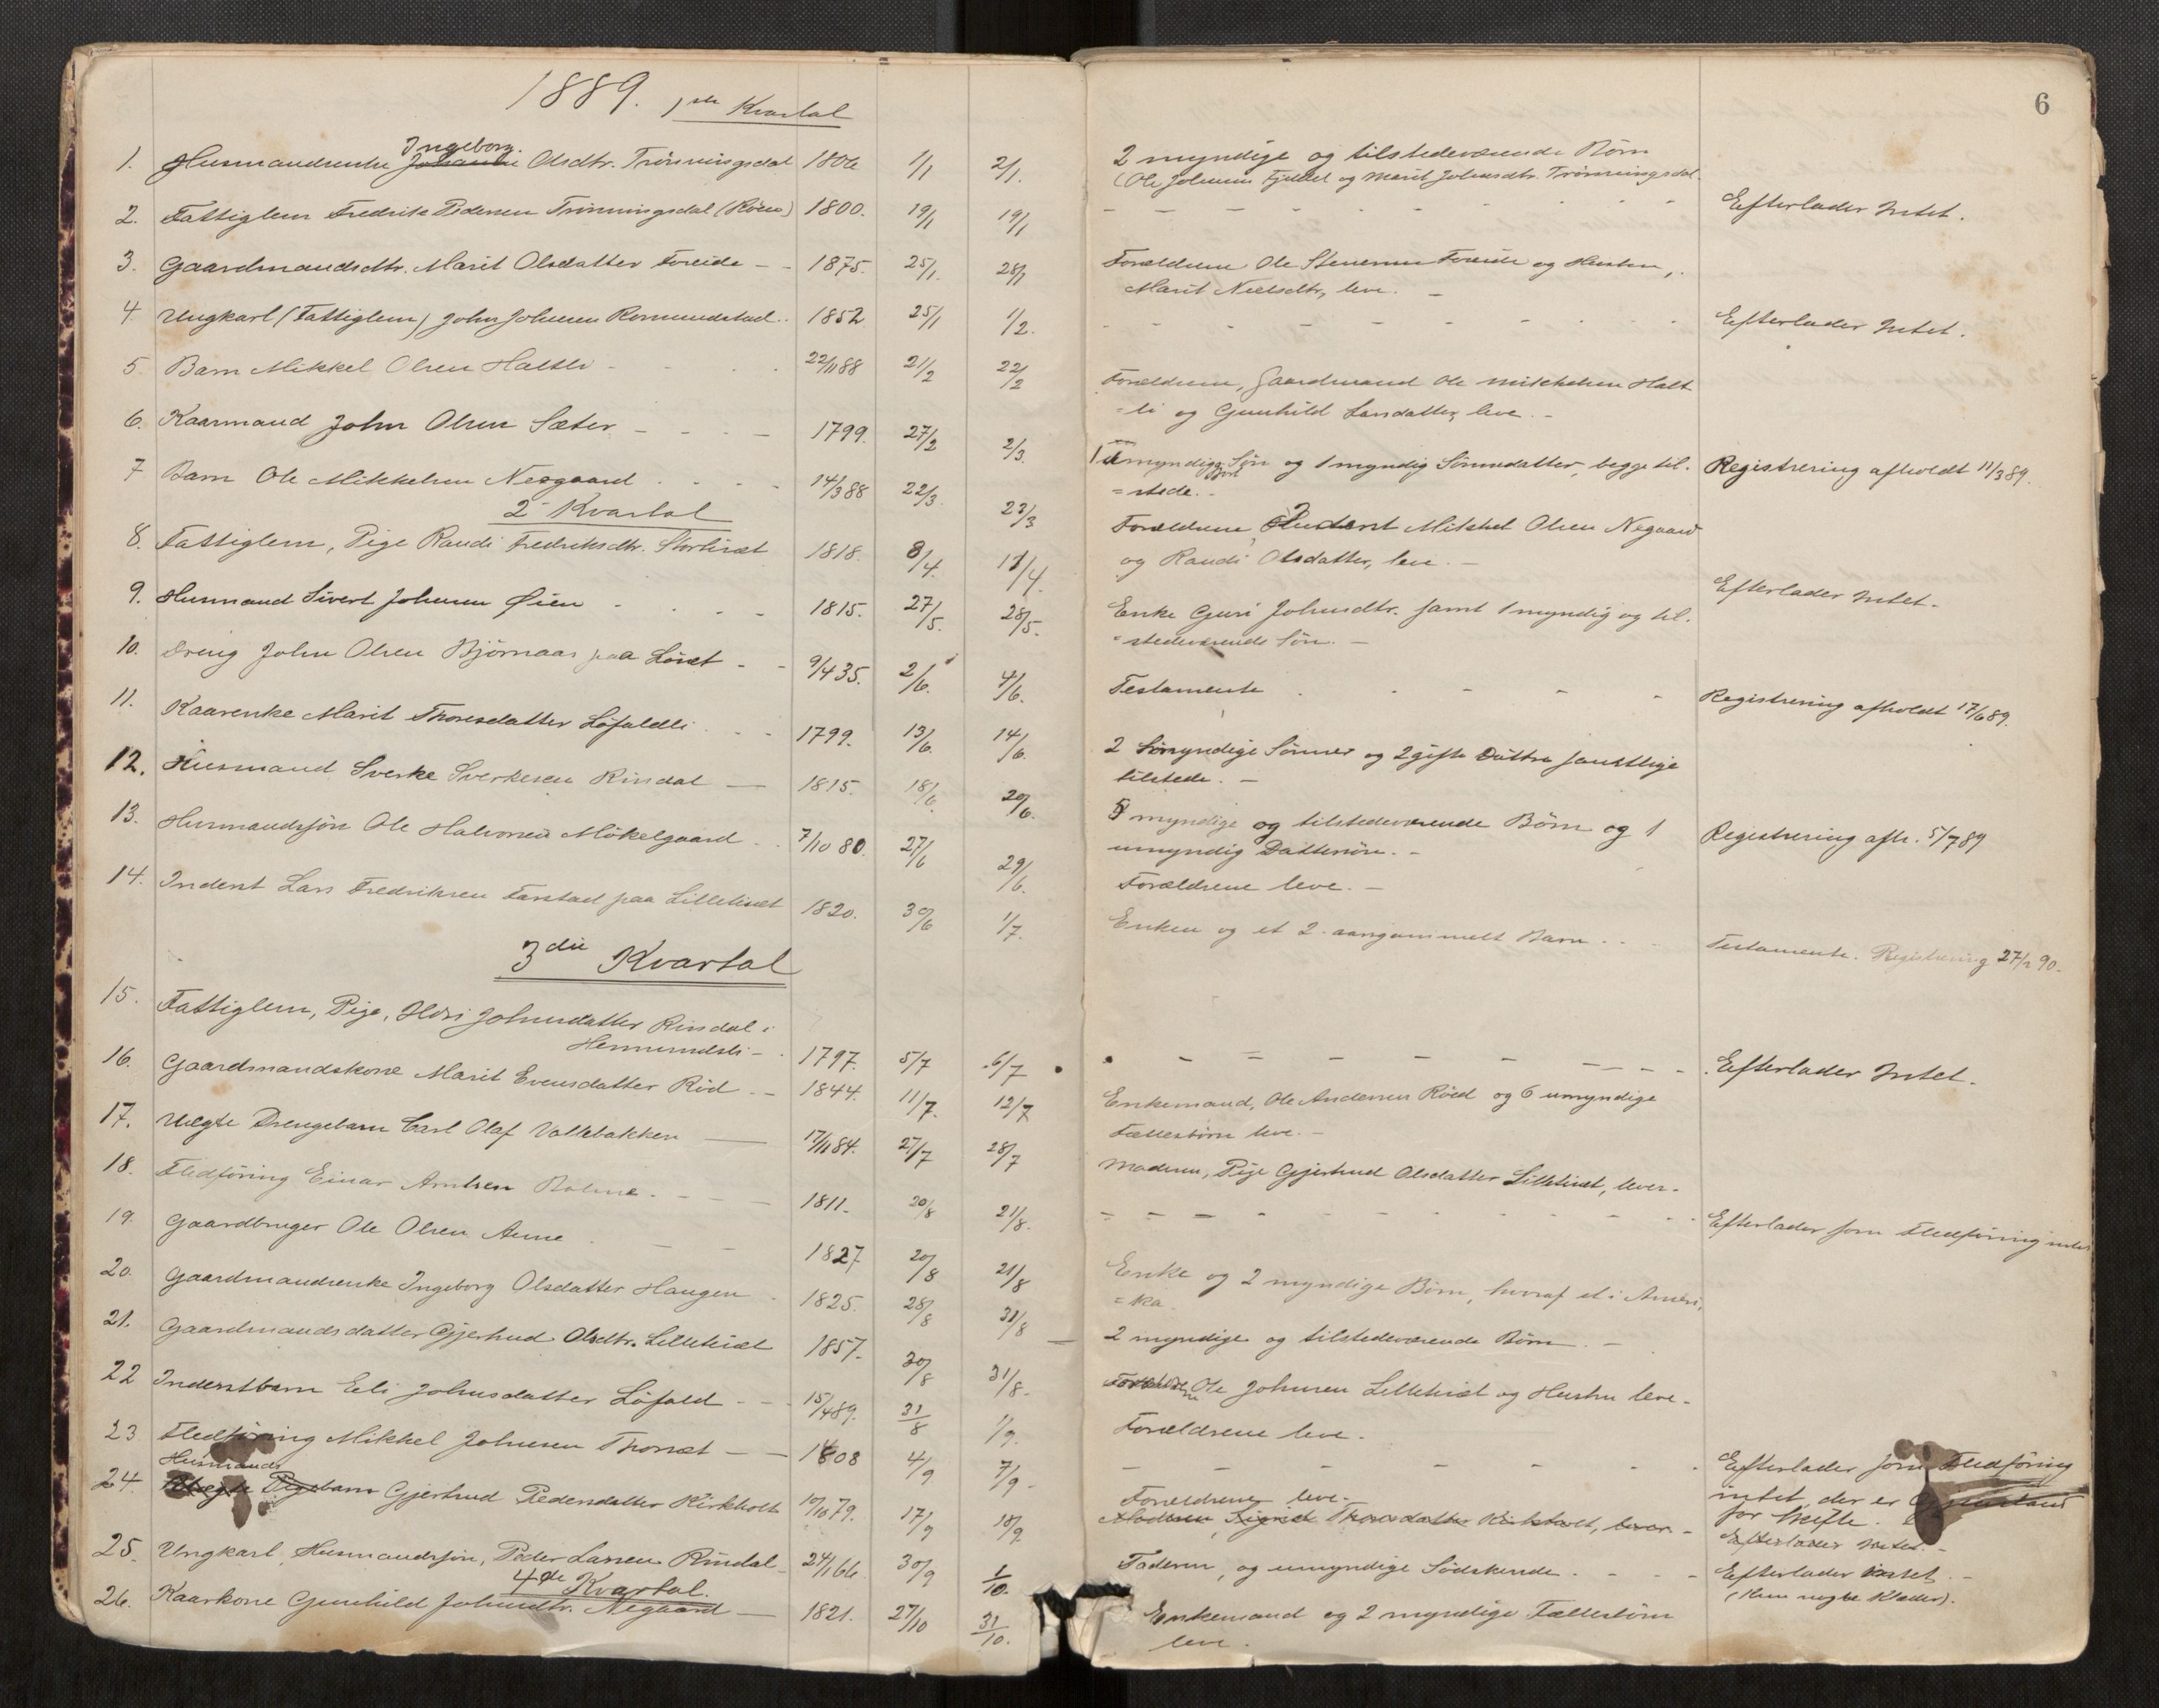 6
1889. 1ste Kvartal
1. Husmandsenke Johanne Ingeborg Olsdtr. Trönningsdal 1806 1/1 2/1. 2 myndige og tilstedeværende Børn
(Ole Johnsen Fjeldet og Marit Johnsdtr. Trönningsdal.
2. Fattiglem Fredrik Pedersen Trönningsdal (Röen) 1800. 19/1 19/1 - - - Efterlader Intet.
3. Gaardmandsdtr. Marit Olsdatter Foreide - - 1875. 25/1. 28/1 Forældrene Ole Stenersen Foreide og Hustru,
Marit Neelsdtr, leve. -
4 Ungkarl (Fattiglem) John Johnsen Romundstad.. 1852 25/1 1/2. - - - Efterlader Intet.
5. Barn Mikkel Olsen Haltli - - 22/11 88 21/2 22/2 Forældrene, Gaardmand Ole Mikkelsen Halt
=li og Gunhild Larsdatter, leve. -
6. Kaarmand John Olsen Sæter - - - - 1799. 27/2 2/3. 1 myndig Søn og 1 myndig Sønnedatter, begge til.
=stede. - Registrering afholdt 11/3 89.
7 Barn Ole Mikkelsen Nesgaard - - - 14/3 88 22/3. 23/3 Forældrene, Inderst Mikkel Olsen Negaard
og Randi Olsdatter, leve. -
2- Kvartal
8. Fattiglem, Pige Randi Fredriksdtr. Stortiræt 1818. 8/4. 11/4. Efterlader Intet.
9. Husmand Sivert Johnsen Øien - - - 1815. 27/5. 28/5. Enke Guri Johnsdtr. samt 1 myndig og til.
=stedeværende Søn. -
10. Dreng John Olsen Bjørnaas paa Løset - - 9/4 35. 2/6. 4/6. Testamente - - - Registrering afholdt 17/6 89.
11. Kaarenke Marit Thoresdatter Løfaldli - - - 1799. 13/6. 14/6. 2 myndige Sønner og 2 gifte Døttre samtlige
tilstede. -
12. Husmand Sverke Sverkesen Rindal - 1815. 18/6. 20/6. 5 myndige og tilstedeværende Børn og 1
umyndig Dattersøn. - Registrering afh. 5/7 89
13. Husmandssøn Ole Halvorsen Møkelgaard - - 7/10 80. 27/6 29/6. Forældrene leve. -
14. Inderst Lars Fredriksen Farstad paa Lilletiræt 1820. 30/6 1/7. Enken og et 2-aargammelt Barn - - Testamente. Registrering 27/2 90.
3die Kvartal
15. Fattiglem, Pige, Ildri Johnsdatter Rindal i
Hermundsli - 1797. 5/7 6/7 - - - Efterlader Intet.
16. Gaardmandskone Marit Evensdatter Röd - - 1844. 11/7. 12/7 Enkemand, Ole Andersen Röed og 6 umyndige
Fællesbørn leve. -
17. Uægte Drengebarn Carl Olaf Vollebakken - 17/11 84. 27/7 28/7 Moderen, Pige Gjertrud Olsdatter Lilletiræt, lever.
18. Fledføring Einar Arntsen Bolme - - - 1811. 20/8 21/8. - - - Efterlader som Fledføring intet
19. Gaardbruger Ole Olsen Aune - - - 1827 20/8 21/8 Enke og 2 myndige Børn, hvoraf et i Ameri,
=ka.
20. Gaardmandsenke Ingeborg Olsdatter Haugen - 1825. 28/8 31/8 - 2 myndige og tilstedeværende Børn. -
21. Gaardmandsdatter Gjertrud Olsdtr. Lilletiræt 1857. 30/8 31/8. Forældrene Ole Johnsen Lilletiræt og Hustru leve.
22 Inderstbarn Eli Johnsdatter Löfald - - - 15/4 89. 31/8 1/9. Forældrene leve. -
23 Fledføring Mikkel Johnsen Thoræt - - 1808 4/9 7/9 - - - - Efterlader som Fledføring
intet, der er
for Skifte.
24. Husmands Uægte Pigebarn Gjertrud Pedersdatter Kirkholt 10/10 79. 17/9 18/9. Forældrene leve.
Moderen Sigrid Thoresdatter Kirkholt, lever. Efterlader Intet. -
25. Ungkarl, Husmandssøn, Peder Larsen Rindal 24/1 66. 30/9 1/10. Faderen, og umyndige Sødskende - - - Efterlader Intet. -
(Kun nogle Klæder).
4de Kvartal.
26. Kaarkone Gunhild Johnsdtr. Negaard - 1821. 27/10 31/10. Enkemand og 2 myndige Fællesbørn
leve.